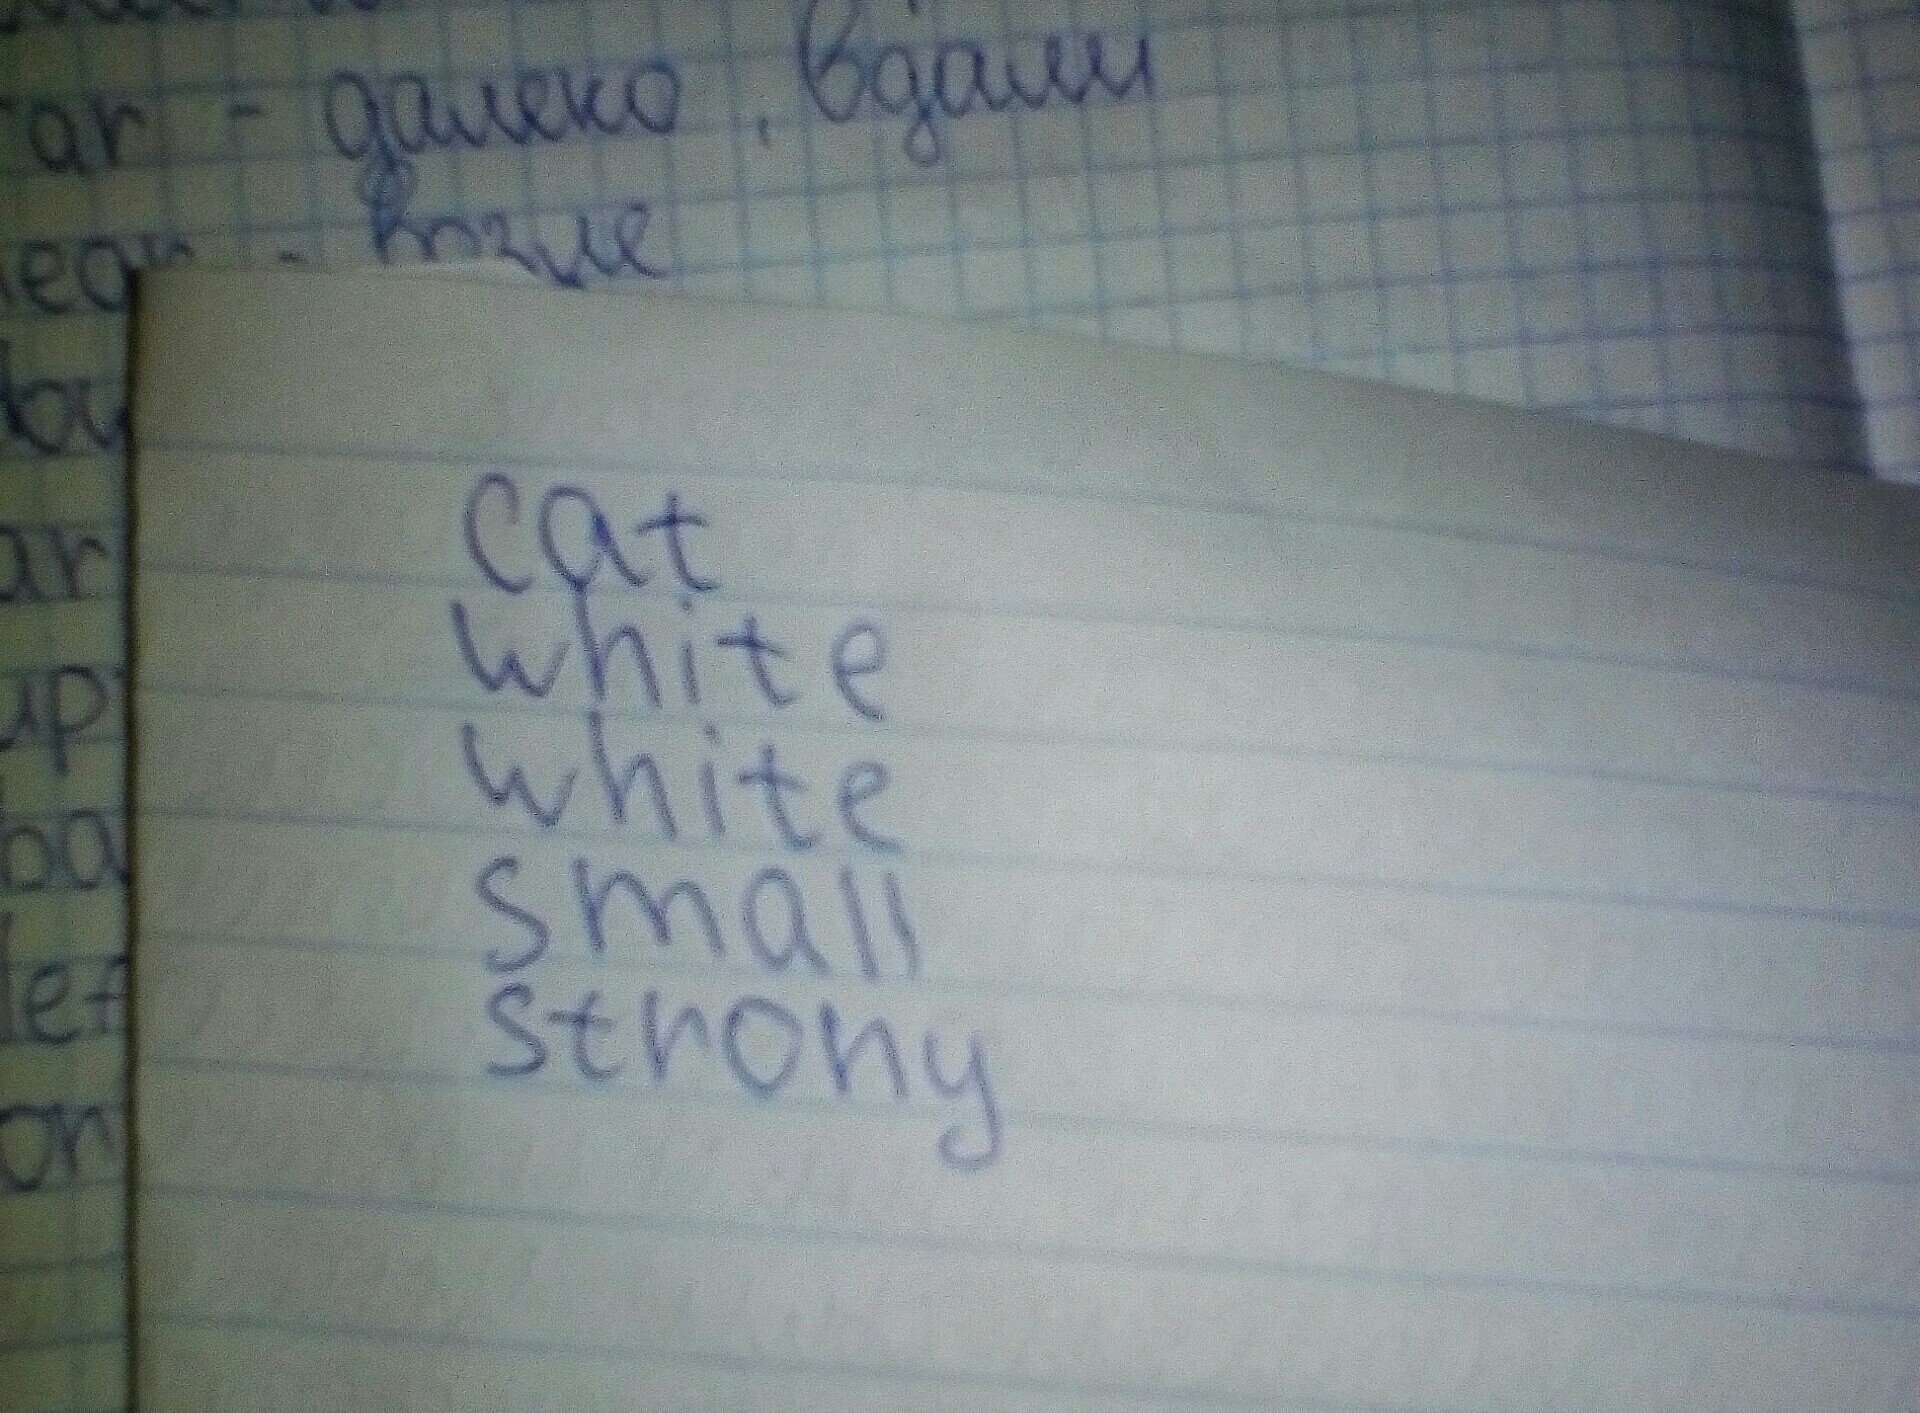 ar - далеко, вдали
ear - возле
bu
ar
up
ba
lef
on
cat
white
white
small
strony